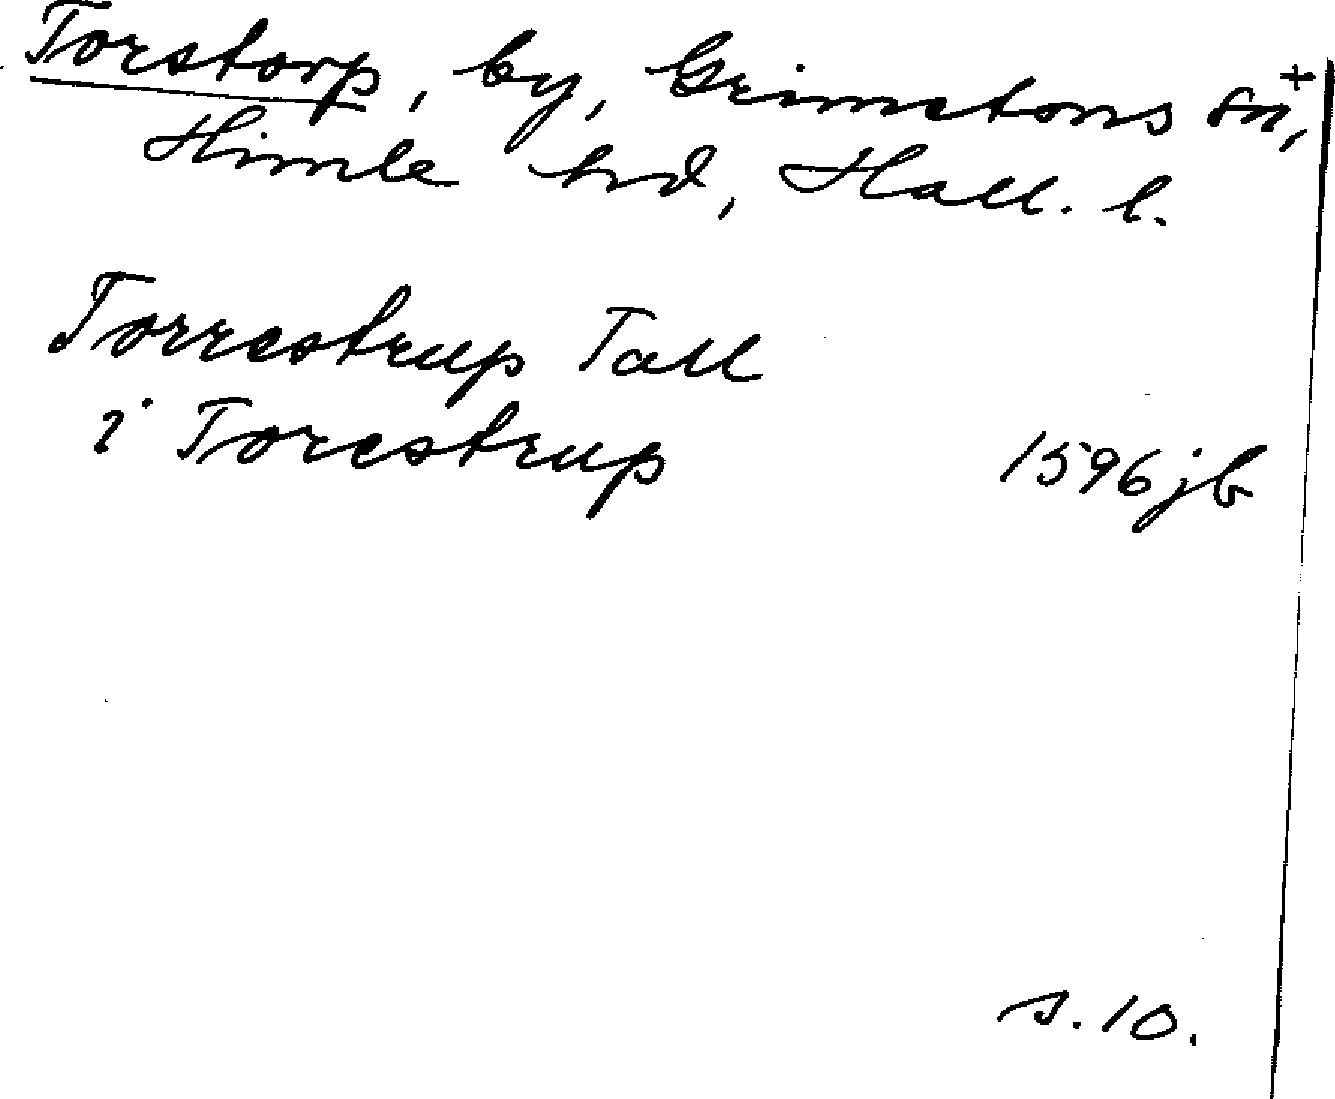 Torstorp, by, Grimetons sn, +
Himle hrd, Hall. l.
Torrestrup Tall
i Torestrup 1596 jb
s. 10.